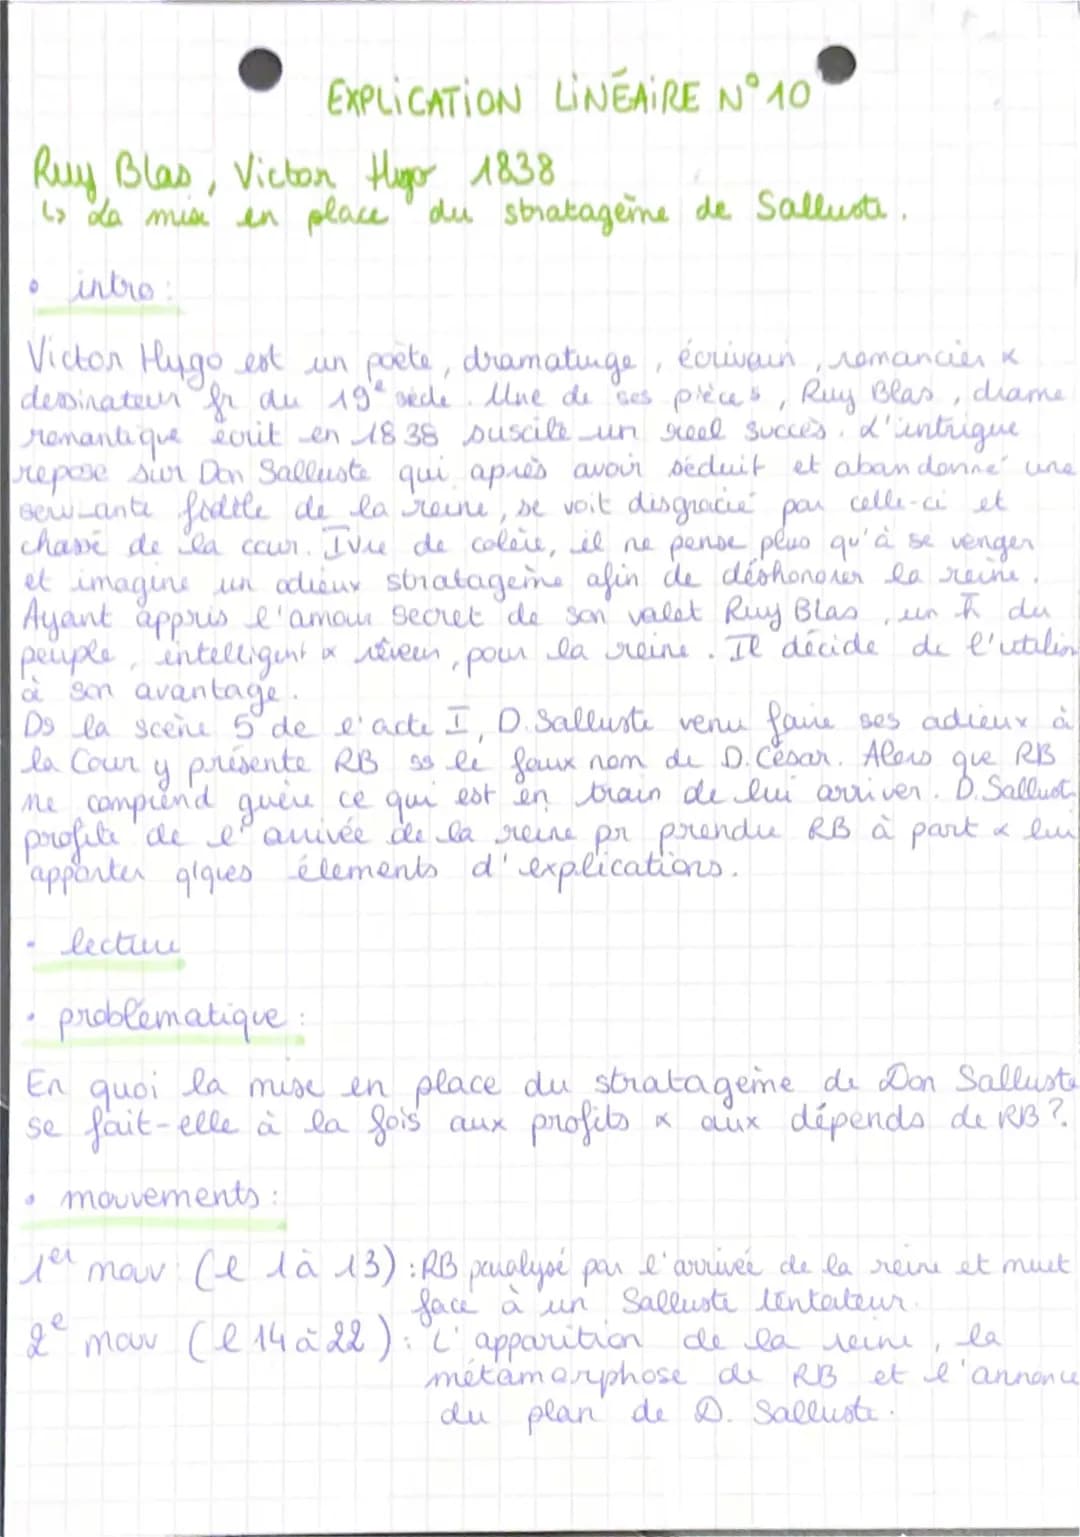 EXPLICATION LINÉAIRE N°10
Ruy Blas, Victor Hugo 1838
↳ La mise en place du stratagème de Salluste.
• intro :
Victor Hugo est un poète, dramaturge, écrivain, romancier &
dessinateur fr du 19e siècle. Une de ses pièces, Ruy Blas, drame
romantique écrit en 1838 suscite un réel succès. L'intrigue
repose sur Don Salluste qui après avoir séduit et abandonné une
servante fidèle de la reine, se voit disgracié par celle-ci et
chassé de la cour. Ivre de colère, il ne pense plus qu'à se venger
et imagine un odieux stratagème afin de déshonorer la reine.
Ayant appris l'amour secret de son valet Ruy Blas, un h du
peuple, intelligent & rêveur, pour la reine. Il décide de l'utiliser
à son avantage.
Ds la scène 5 de l'acte I, D. Salluste venu faire ses adieux à
la Cour y présente RB ss le faux nom de D. César. Alors que RB
ne comprend guère ce qui est en train de lui arriver. D. Sallust
profite de l'arrivée de la reine pr prendre RB à part & lui
apporter qlques élements d'explications.
- lecture
• problématique :
En quoi la mise en place du stratagème de Don Salluste
se fait-elle à la fois aux profits & aux dépends de RB ?
• mouvements :
1er mouv (l 1 à 13) : RB paralysé par l'arrivée de la reine et muet
face à un Salluste tentateur.
2e mouv (l 14 à 22) : L'apparition de la reine, la
métamorphose de RB et l'annonce
du plan de D. Salluste.